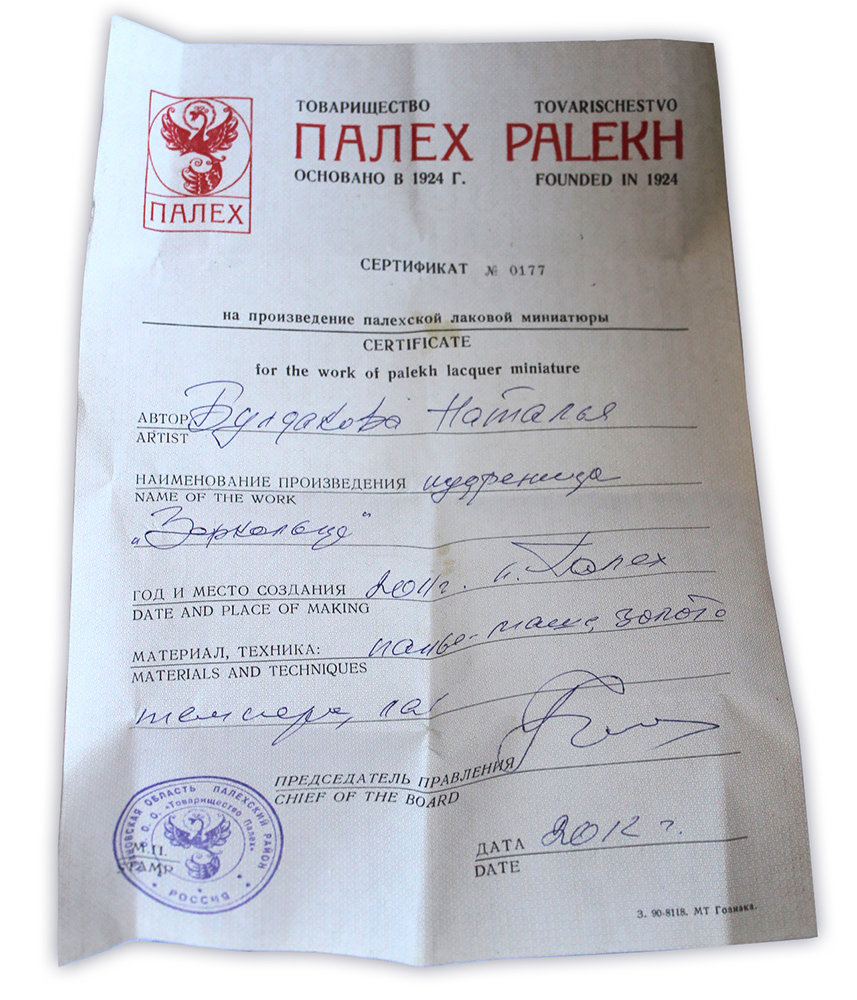 ПАЛЕХ
ТОВАРИЩЕСТВО TOVARISCHESTVO
ПАЛЕХ PALEKH
ОСНОВАНО В 1924 Г. FOUNDED IN 1924
СЕРТИФИКАТ № 0177
на произведение палехской лаковой миниатюры
CERTIFICATE
for the work of palekh lacquer miniature
АВТОР Булдакова Наталья
ARTIST
НАИМЕНОВАНИЕ ПРОИЗВЕДЕНИЯ пудреница
NAME OF THE WORK
„Зеркальце"
ГОД И МЕСТО СОЗДАНИЯ 2011г. п. Палех
DATE AND PLACE OF MAKING
МАТЕРИАЛ, ТЕХНИКА: папье-маше, золото
MATERIALS AND TECHNIQUES
темпера, лак
ПРЕДСЕДАТЕЛЬ ПРАВЛЕНИЯ
CHIEF OF THE BOARD
ОБЛАСТЬ ПАЛЕХСКИЙ РАЙОН
О.О.О. «Товарищество Палех»
РОССИЯ
М.П.
STAMP
ДАТА 2012 г.
DATE
З. 90-8118. МТ Гознака.